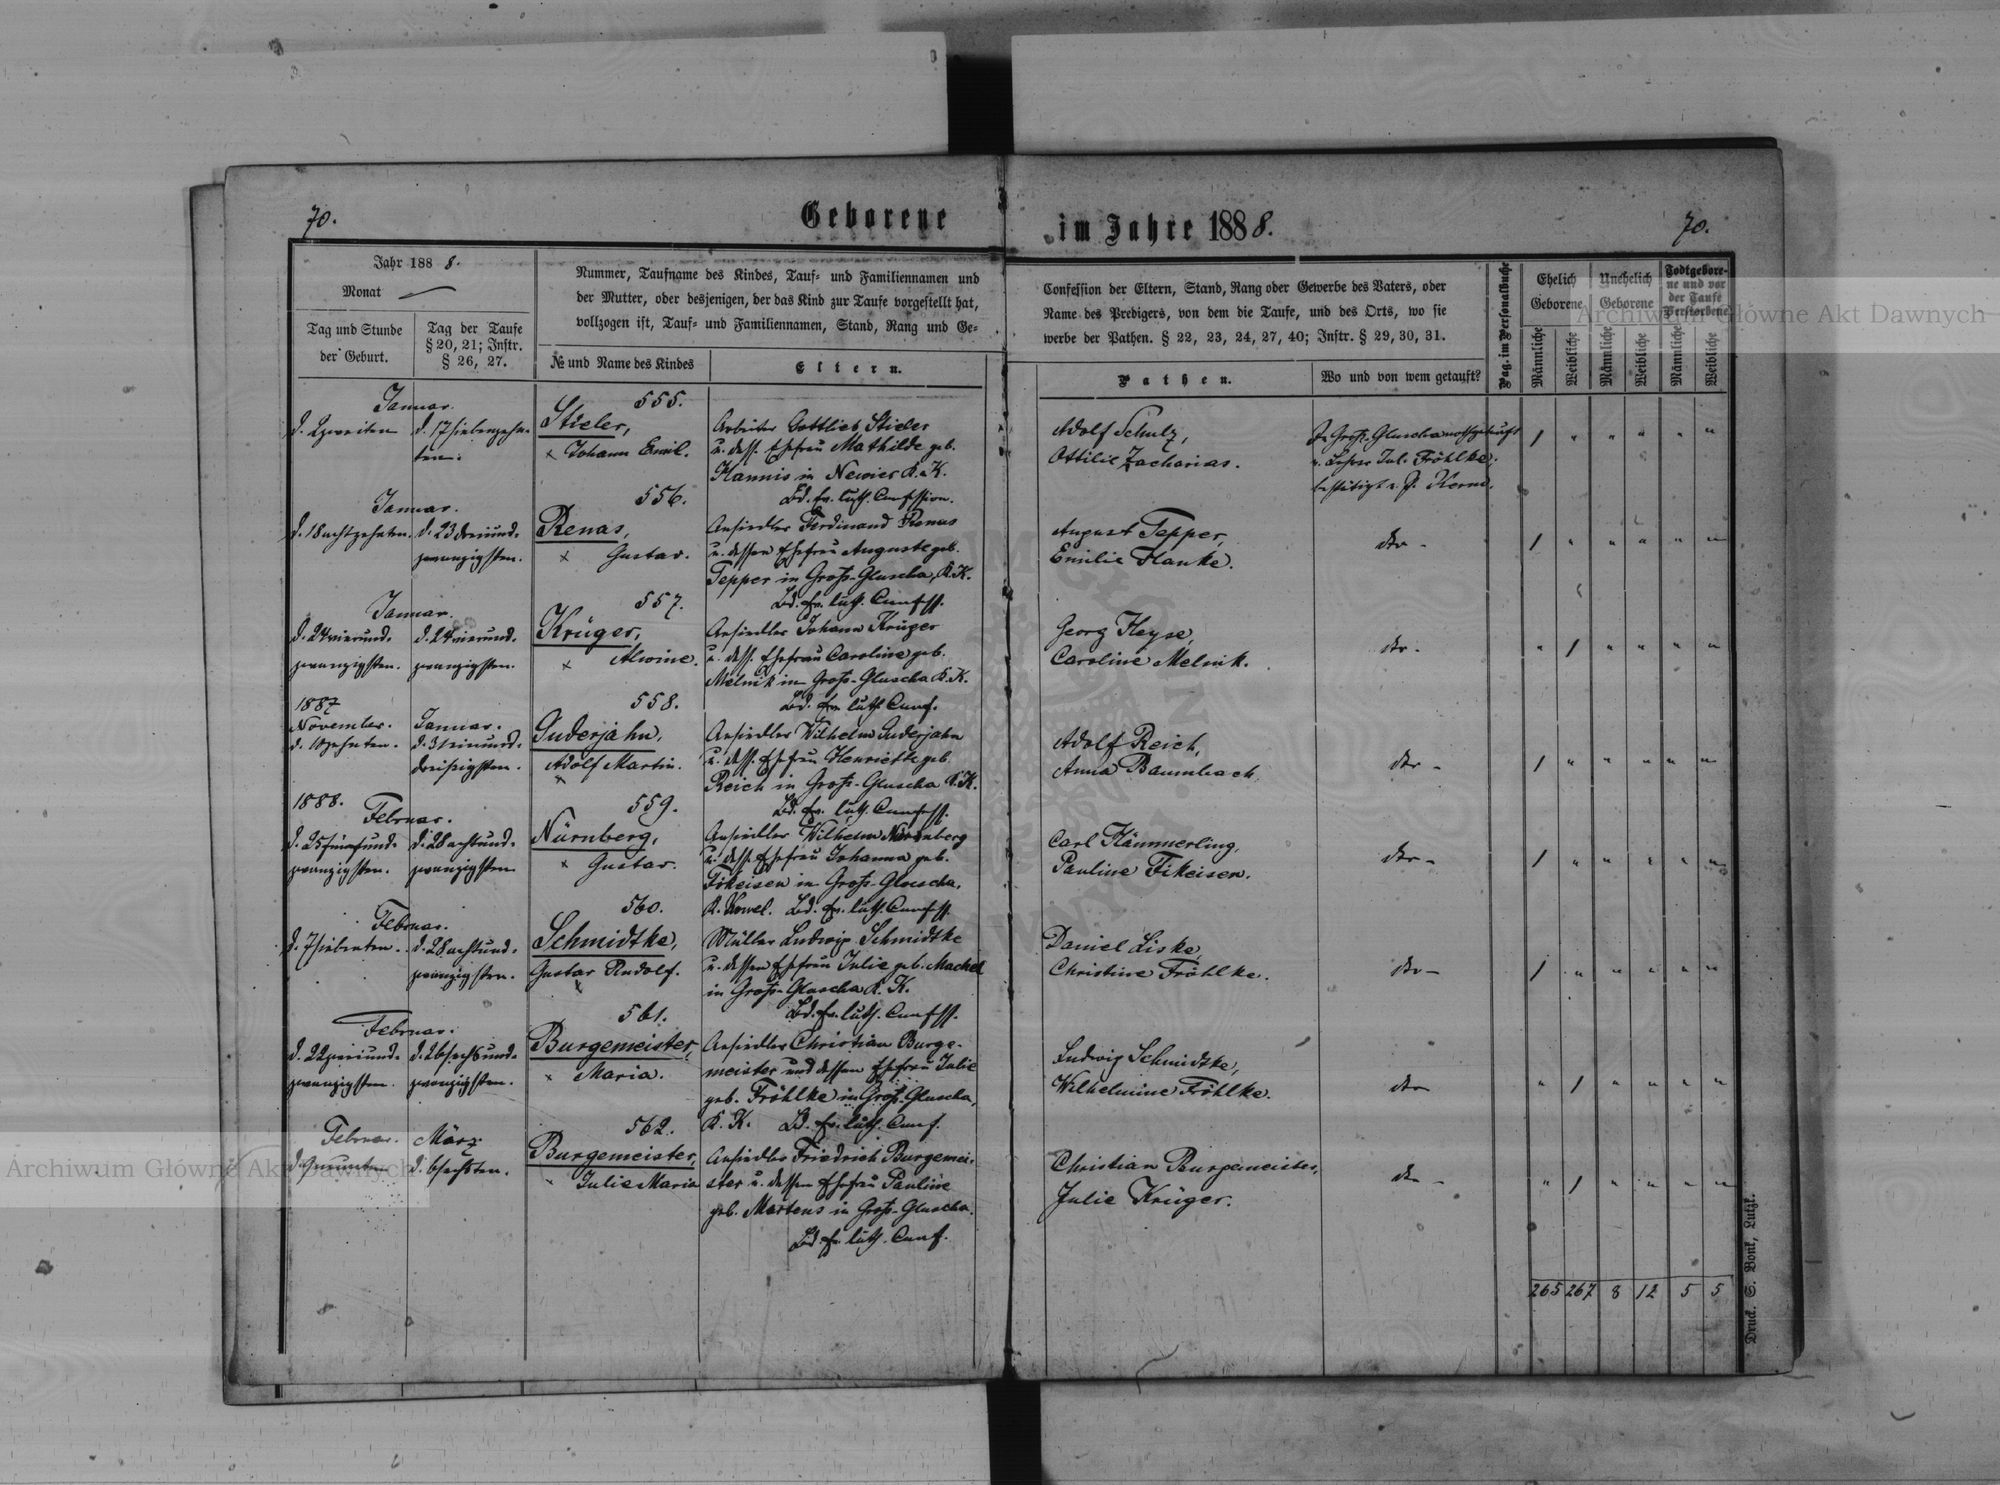 70.
Geborene
im Jahre 1888.
70.
Jahr 188 8.
Monat
Tag und Stunde
der Geburt.
Tag der Taufe
§ 20, 21; Instr.
§ 26, 27.
Nummer, Taufname des Kindes, Tauf- und Familiennamen und
der Mutter, oder desjenigen, der das Kind zur Taufe vorgestellt hat,
vollzogen ist, Tauf- und Familiennamen, Stand, Rang und Ge-
№ und Name des Kindes
Eltern.
Confession der Eltern, Stand, Rang oder Gewerbe des Vaters, oder
Name des Predigers, von dem die Taufe, und des Orts, wo sie
werbe der Pathen. § 22, 23, 24, 27, 40; Instr. § 29, 30, 31.
Pathen.
Wo und von wem getauft?
Pag. im Personalbuche
Ehelich
Geborene
Unehelich
Geborene
Todtgebore-
ne und vor
der Taufe
Verstorbene
Männliche
Weibliche
Männliche
Weibliche
Männliche
Weibliche
Januar.
d. 2 zweiten
d. 17 siebenzehn-
ten.
555.
Stieler,
× Johann Emil.
Arbeiter Gottlieb Stieler
u. dess. Ehefrau Mathilde geb.
Hannis in Newier K. K.
Bd. ev. luth. Confession.
Adolf Schulz,
Ottilie Zacharias.
In Groß-Gluscha nothgetauft
v. Lehrer Jul. Fröhlke;
bestätigt v. P. Kerm.
1 " " " " "
Januar.
d. 18 achtzehnten.
d. 23 dreiund-
zwanzigsten.
556.
Renas,
× Gustav.
Ansiedler Ferdinand Renas
u. dessen Ehefrau Auguste geb.
Tepper in Groß-Gluscha, K. K.
Bd. ev. luth. Confess.
August Tepper,
Emilie Hanke.
dto -
1 " " " " "
Januar.
d. 24 vierund-
zwanzigsten.
d. 24 vierund-
zwanzigsten.
557.
Krüger,
× Alwine.
Ansiedler Johann Krüger
u. dess. Ehefrau Caroline geb.
Melnik in Groß-Gluscha K. K.
Bd. ev. luth. Conf.
Georg Heyse,
Caroline Melnik.
dto -
" 1 " " " "
1887
November.
d. 10 zehnten.
Januar.
d. 31 einund-
dreißigsten.
558.
Guderjahn,
Adolf Martin.
×
Ansiedler Wilhelm Guderjahn
u. dess. Ehefrau Henriette geb.
Reich in Groß-Gluscha K. K.
Bd. ev. luth. Confess.
Adolf Reich,
Anna Baumbach
dto -
1 " " " " "
1888.
Februar.
d. 25 fünfund-
zwanzigsten.
d. 28 achtund-
zwanzigsten
559.
Nürnberg,
× Gustav.
Ansiedler Wilhelm Nürnberg
u. dess. Ehefrau Johanna geb.
Fikeisen in Groß-Gluscha,
K. Kowel. Bd. ev. luth. Confess.
Carl Hämmerling,
Pauline Fikeisen.
dto -
1 " " " " "
Februar.
d. 7 siebenten.
d. 28 achtund-
zwanzigsten.
560.
Schmidtke,
Gustav Rudolf.
×
Müller Ludwig Schmidtke
u. dessen Ehefrau Julie geb. Machel
in Groß-Gluscha K. K.
Bd. ev. luth. Confess.
Daniel Liske,
Christine Fröhlke.
dto -
1 " " " " "
Februar.
d. 22 zweiund-
zwanzigsten.
d. 26 sechsund-
zwanzigsten.
561.
Burgemeister,
× Maria.
Ansiedler Christian Burge-
meister und dessen Ehefrau Julie
geb. Fröhlke in Groß-Gluscha,
K. K. Bd. ev. luth. Conf.
Ludwig Schmidtke,
Wilhelmine Fröhlke.
dto
" 1 " " " "
Februar.
d. 9 neunten
März
d. 6 sechsten.
562.
Burgemeister,
Julie Maria
Ansiedler Friedrich Burgemei-
ster u. dessen Ehefrau Pauline
geb. Martens in Groß-Gluscha.
Bd. ev. luth. Conf.
Christian Burgemeister,
Julie Krüger.
dto -
" 1 " " " "
265 267 8 12 5 5
Druck. S. Bonk, Lutzk.
Archiwum Główne Akt Dawnych
Archiwum Główne Akt Dawnych